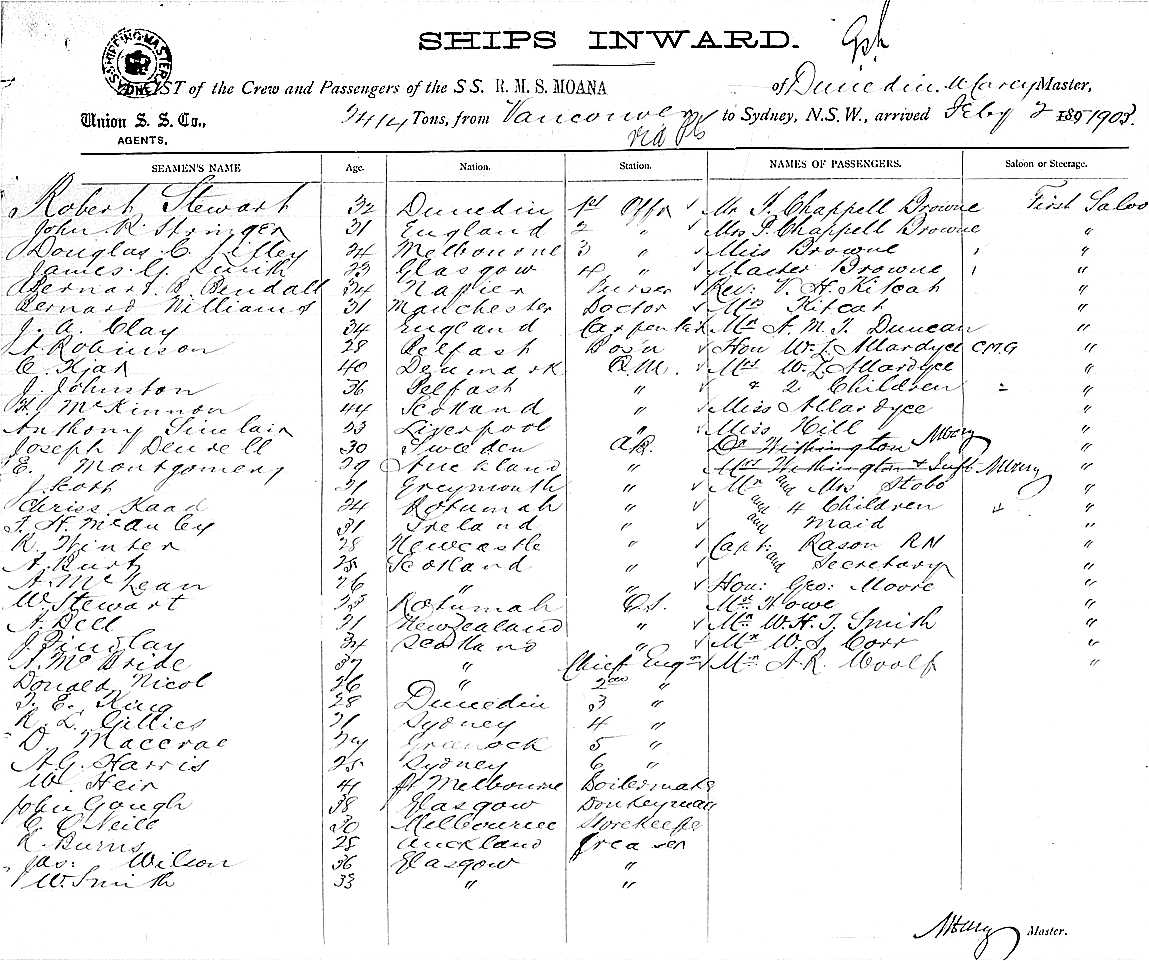 SHIPS INWARD.
SHIPPING MASTERS SYDNEY
LIST of the Crew and Passengers of the SS. R. M. S. MOANA of Dunedin. M Carey Master,
Union S. S. Co., 2414 Tons, from Vancouver to Sydney, N.S.W., arrived Feby 2 1903.
AGENTS, via
SEAMEN'S NAME Age. Nation. Station. NAMES OF PASSENGERS. Saloon or Steerage.
Robert Stewart 32 Dunedin 1st Offr Mr J. Chappell Browne First Saloo
John R. Stringer 31 England 2 " Mrs J. Chappell Browne "
Douglas C. Liffey 24 Melbourne 3 " Miss Browne "
James G. 23 Glasgow 4 " Master Browne "
Bernard B. Bendall 34 Napier Purser Rev: V. H. Kitcat "
Bernard Williams 31 Manchester Doctor Mrs Kitcat "
J. A. Clay 34 England Carpenter Mr A. M. J. Duncan "
A Robinson 28 Belfast Bos'n Hon W. L. Allardyce CMG "
C. Kjar 40 Denmark Q.M. Mrs W. L. Allardyce "
J. Johnston 36 Belfast " & 2 Children "
McKinnon 44 Scotland " Miss Allardyce "
Anthony Sinclair 23 Liverpool " Miss Hill "
Joseph 30 Sweden AB. Dr Withington
E. Montgomery 29 Auckland " Mrs Withington & Inft "
J. Scott 21 Greymouth " Mr and Mrs Stobo "
Chriss Kaad 24 Rotumah " and 4 Children "
J. H. McAuley 31 Ireland " and Maid "
R. Winter 28 Newcastle " Capt: Rason RN "
A. Burt 25 Scotland " and Secretary "
A. McLean 26 " " Hon: Geo: Moore "
W. Stewart 23 Rotumah O.S. Mr Howe "
A. Dell 21 New Zealand " Mr W. H. J. Smith "
J. Findlay 34 Scotland " Mr W. J. Corr "
A. McBride 37 " Chief Engr Mr A. R. Woolf "
Donald Nicol 26 " 2nd "
J. E. King 28 Dunedin 3 "
R. L. Gillies 21 Sydney 4 "
D. Maccrae Greenock 5 "
A. G. Harris 25 Sydney 6 "
W. Heir 41 Melbourne Boilermake
John Gough 38 Glasgow Donkeyman
C. O'Neill 30 Melbourne Storekeepe
R. Burns 25 Auckland Greaser
Jas: Wilson 36 Glasgow "
W. Smith 33 " "
Master.